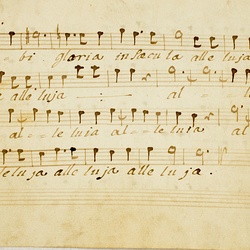 bi gloria in sæcula alleluja
alleluja al=
al==leluia al==leluia al
leluja alleluja alleluja.